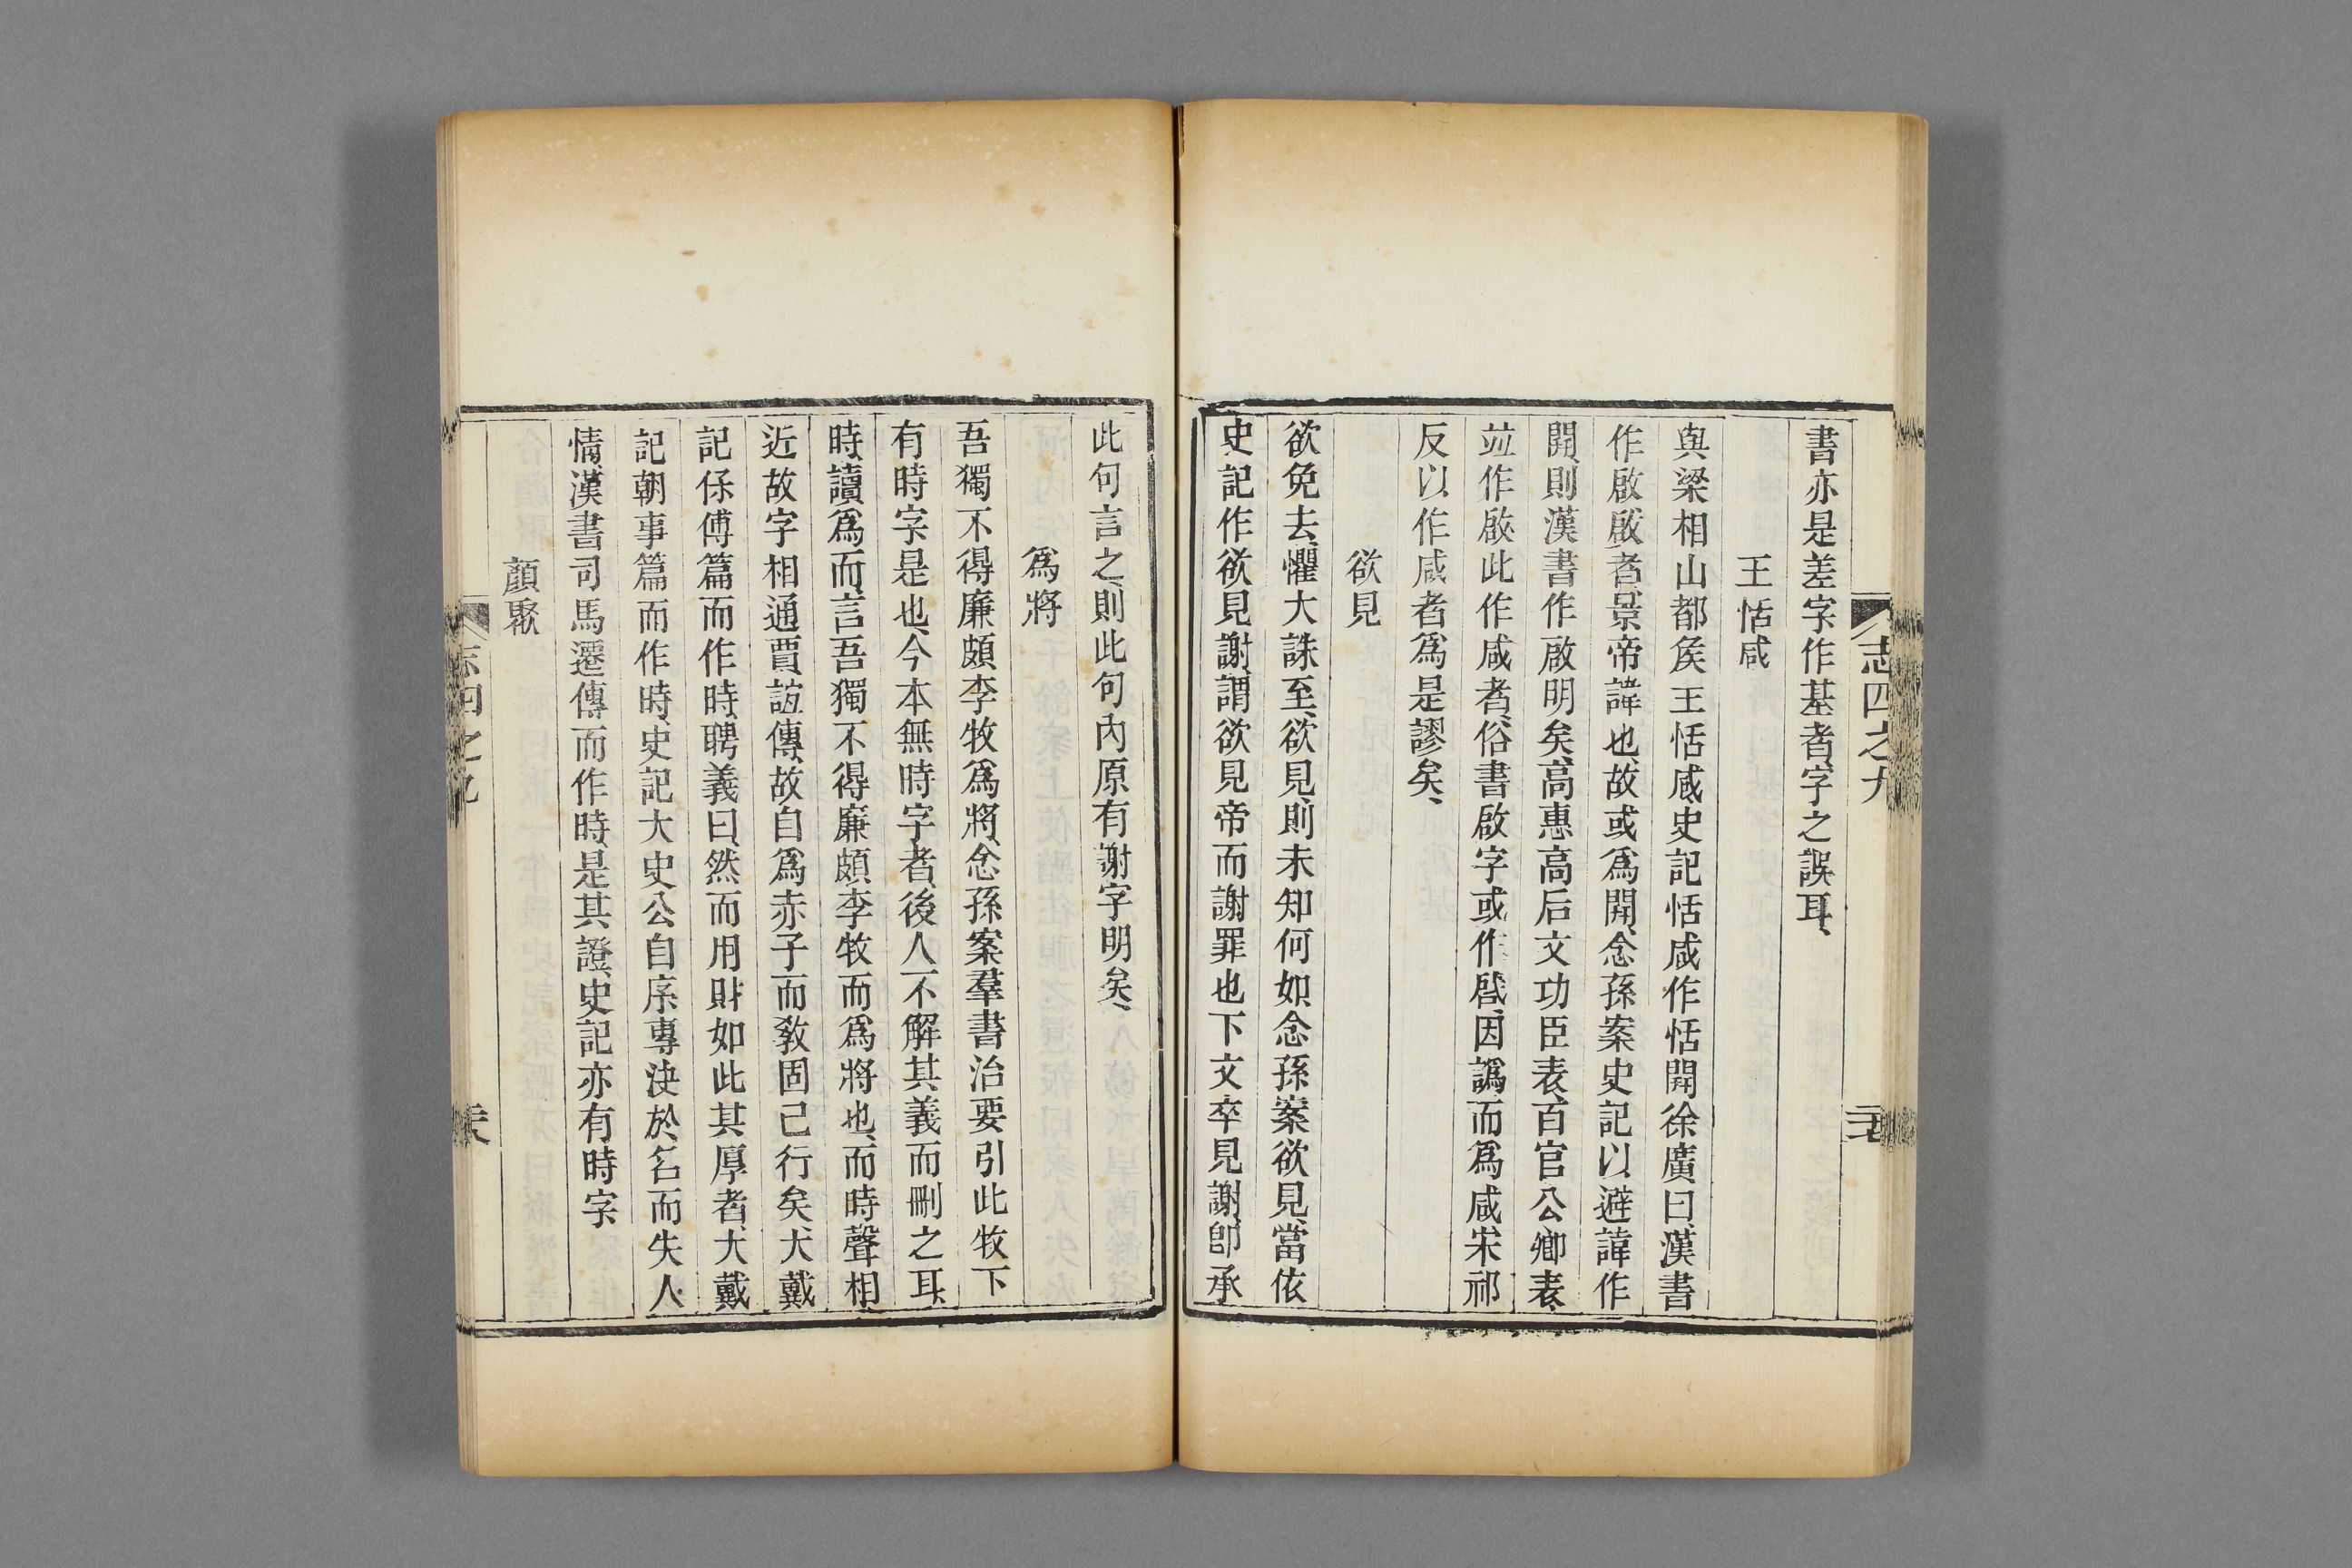 志四之九
二七
書亦是差字作基者、字之誤耳、
王恬咸
與梁相山都矦王恬咸、史記恬咸作恬開、徐廣曰、漢書
作啟、啟者、景帝諱也、故或爲開、念孫案史記以避諱作
開、則漢書作啟明矣、高惠高后文功臣表、百官公卿表、
竝作啟、此作咸者、俗書啟字或作啓、因譌而爲咸、宋祁
反以作咸者爲是、謬矣、
欲見
欲免去、懼大誅至、欲見、則未知何如、念孫案欲見、當依
史記作欲見謝、謂欲見帝而謝罪也、下文卒見謝、卽承
此句言之、則此句內原有謝字明矣、
爲將
吾獨不得廉頗李牧爲將、念孫案羣書治要引此牧下
有時字是也、今本無時字者、後人不解其義而刪之耳、
時、讀爲而、言吾獨不得廉頗、李牧而爲將也、而時聲相
近、故字相通、賈誼傳、故自爲赤子而敎固已行矣、大戴
記保傅篇而作時、聘義曰、然而用財如此其厚者、大戴
記朝事篇而作時、史記大史公自序、專決於名而失人
情、漢書司馬遷傳而作時、是其證、史記亦有時字、
顏聚
志四之九
二六